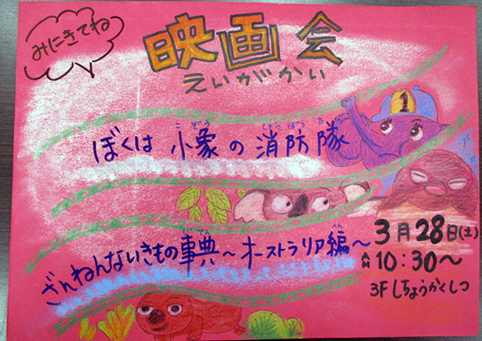 みにきてね
映画会
えいがかい
ぼくは 小象の消防隊
1
ざんねんないきもの事典〜オーストラリア編〜
3月28日(土)
AM 10:30〜
3F しちょうかくしつ